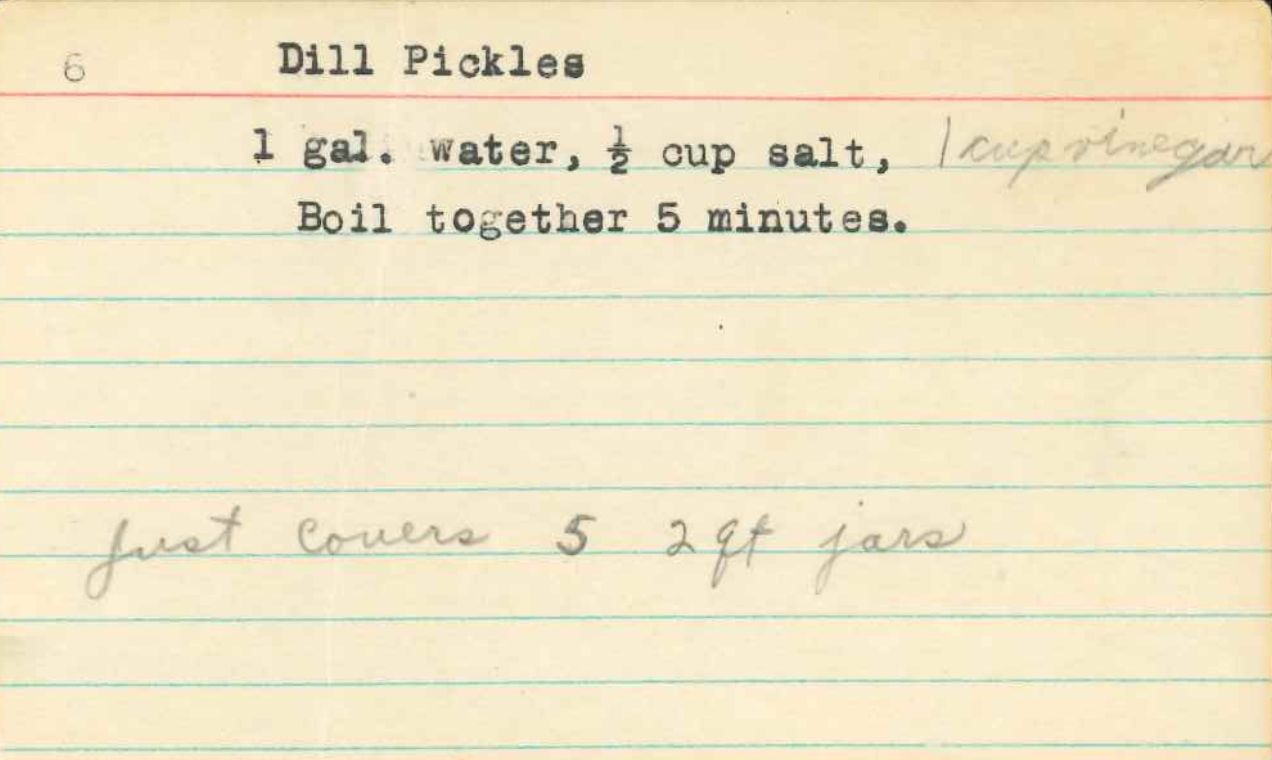 6 Dill Pickles
1 gal. water, ½ cup salt, 1 cup vinegar
Boil together 5 minutes.
Just covers 5 2 qt jars